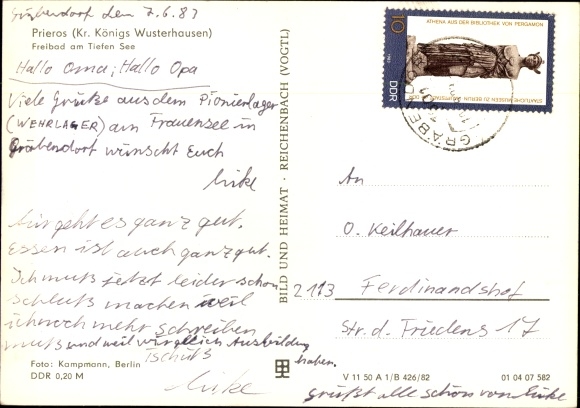 Gräbendorf den 7.6.83
Prieros (Kr. Königs Wusterhausen)
Freibad am Tiefen See
Hallo Oma; Hallo Opa
Viele Grüße aus dem Pionierlager
(WEHRLAGER) am Frauensee in
Gräbendorf wünscht Euch
Mike
Mir geht es ganz gut.
Essen ist auch ganz gut.
Ich muß jetzt leider schon
schluß machen weil
ich noch mehr schreiben
muß und weil wir gleich Ausbildung
haben.
Tschüß
Mike
Foto: Kampmann, Berlin
DDR 0,20 M
BILD UND HEIMAT · REICHENBACH (VOGTL)
10
ATHENA AUS DER BIBLIOTHEK VON PERGAMON
STAATLICHE MUSEEN ZU BERLIN
DDR
GRÄBEN
1601
An
O. Keilhauer
2113 Ferdinandshof
Str. d. Friedens 17
V 11 50 A 1/B 426/82
01 04 07 582
grüßt alle schön von Mike